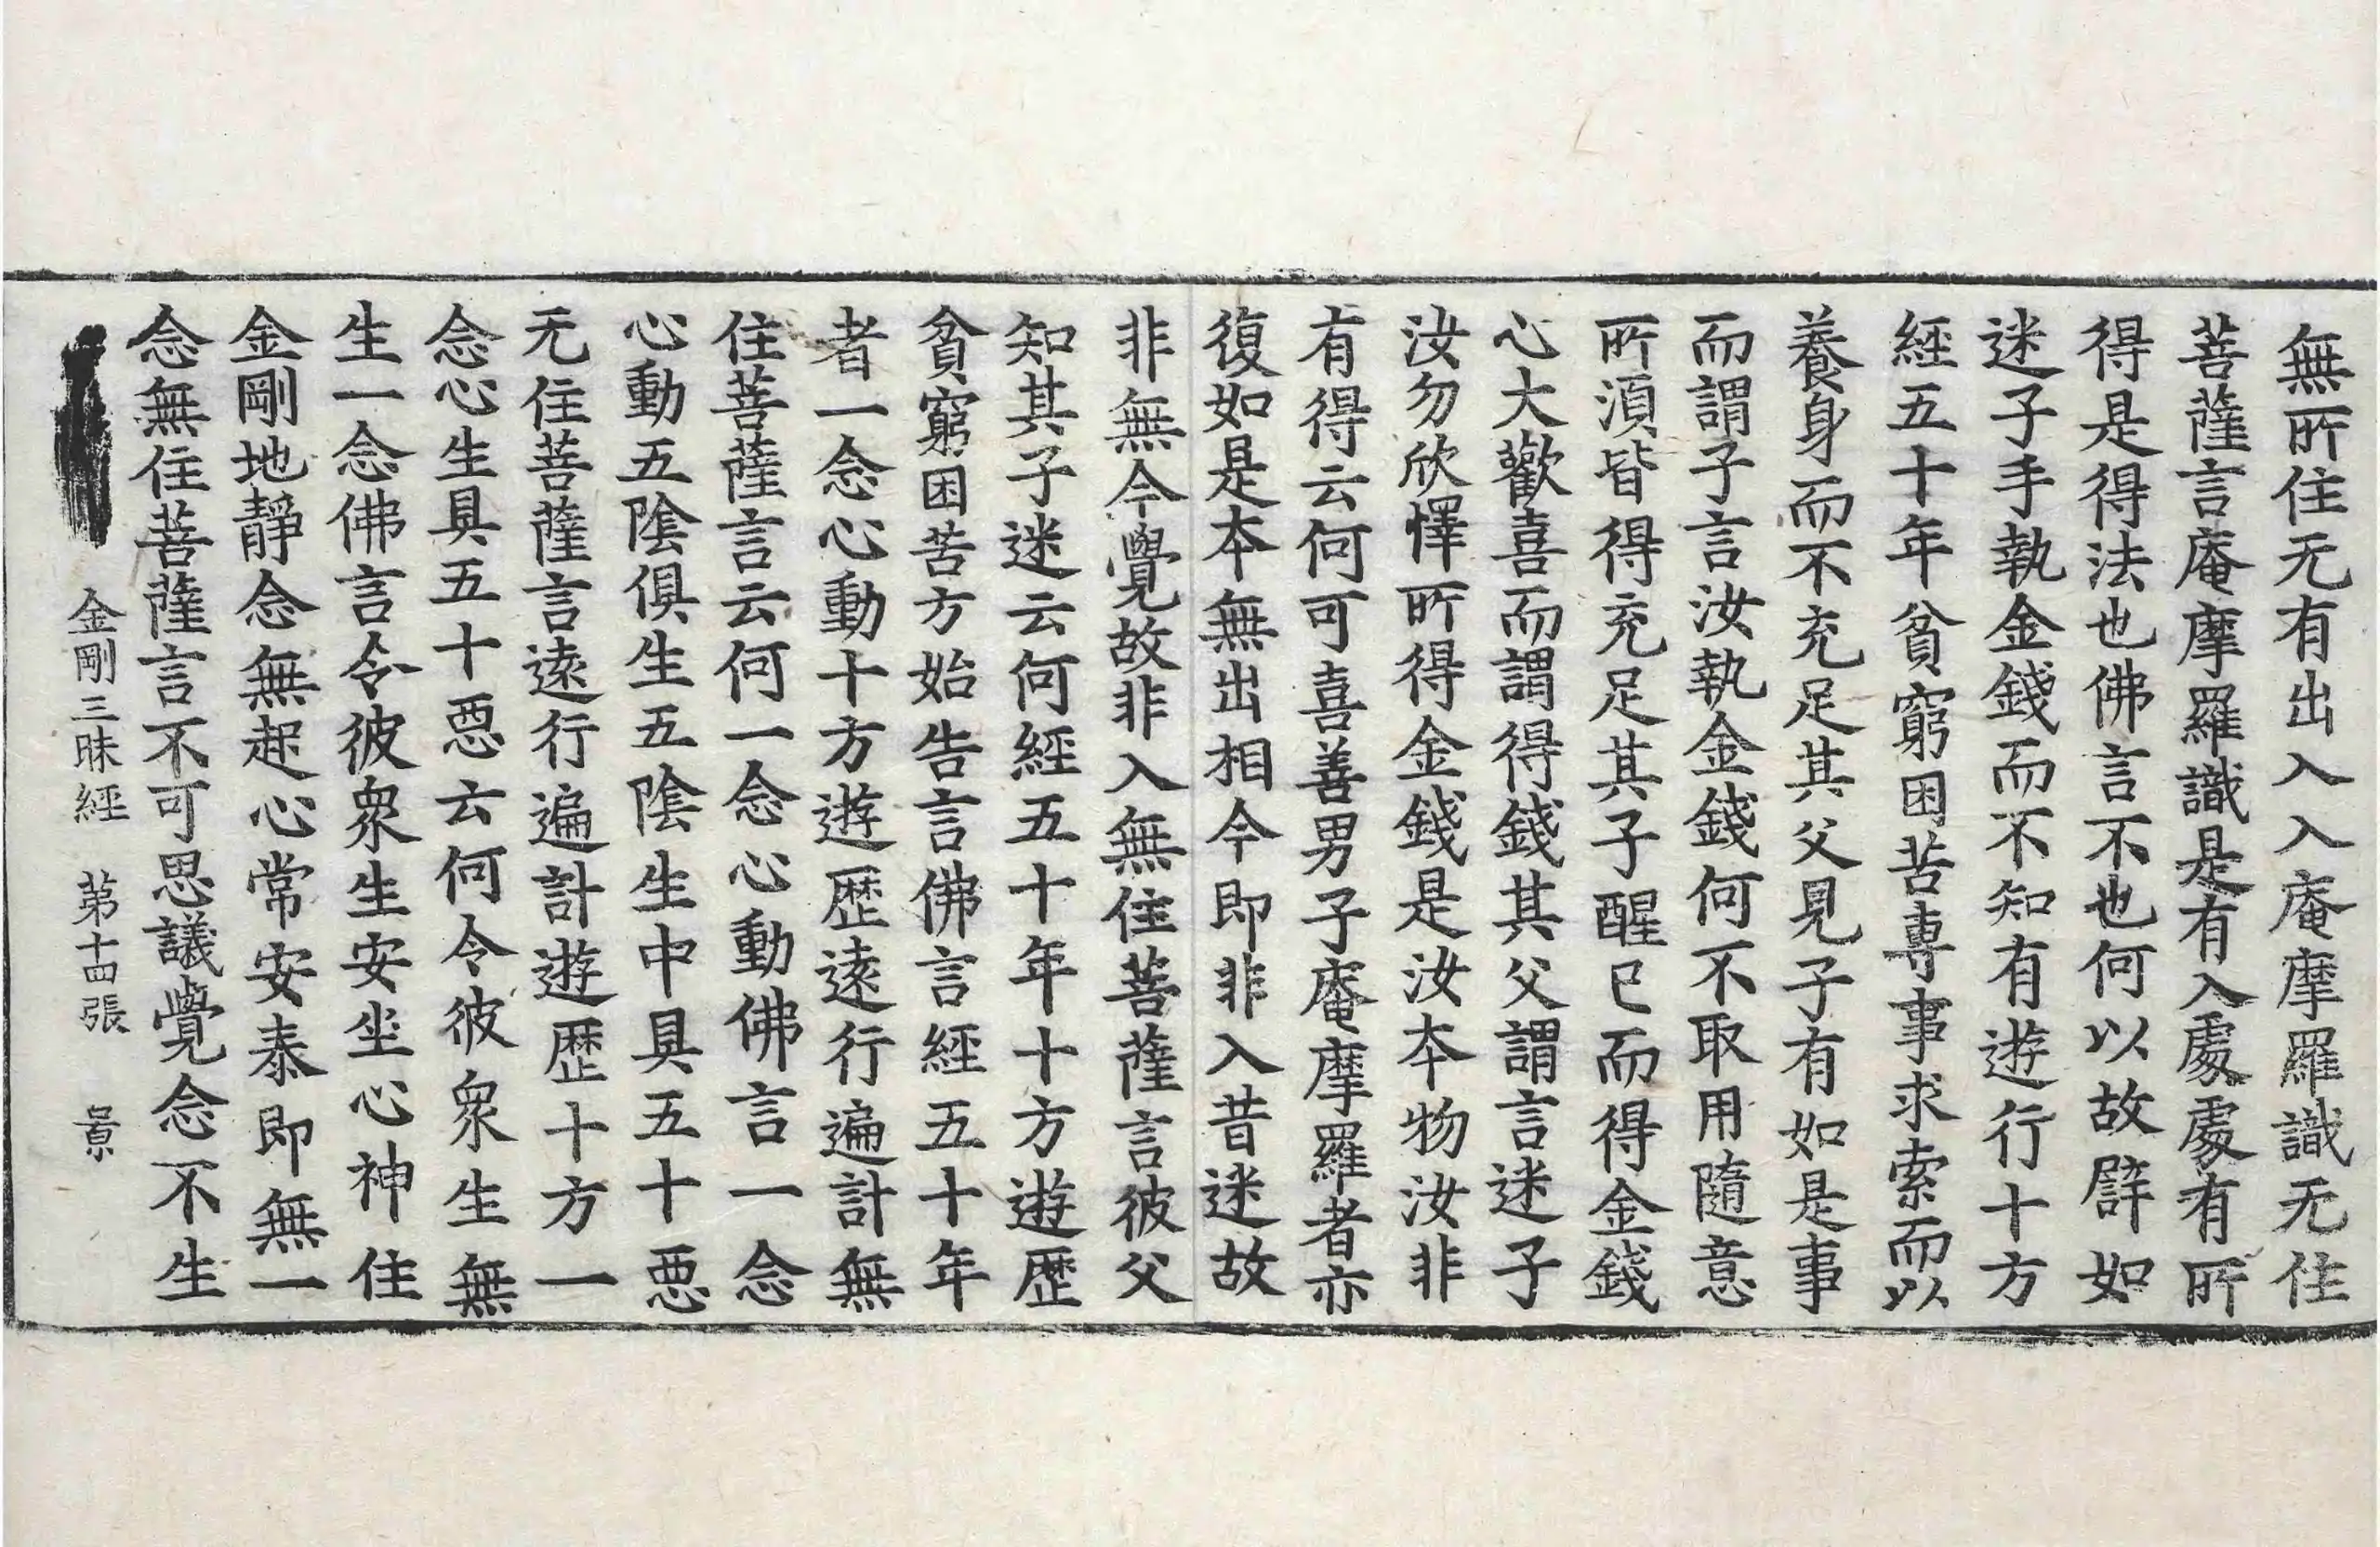 無所住无有出入入庵摩羅識无住
菩薩言庵摩羅識是有入處處有所
得是得法也佛言不也何以故譬如
迷子手執金錢而不知有遊行十方
經五十年貧窮困苦專事求索而以
養身而不充足其父見子有如是事
而謂子言汝執金錢何不取用隨意
所須皆得充足其子醒已而得金錢
心大歡喜而謂得錢其父謂言迷子
汝勿欣懌所得金錢是汝本物汝非
有得云何可喜善男子庵摩羅者亦
復如是本無出相今即非入昔迷故
非無今覺故非入無住菩薩言彼父
知其子迷云何經五十年十方遊歷
貧窮困苦方始告言佛言經五十年
者一念心動十方遊歷遠行遍計無
住菩薩言云何一念心動佛言一念
心動五陰俱生五陰生中具五十惡
无住菩薩言遠行遍計遊歷十方一
念心生具五十惡云何令彼衆生無
生一念佛言令彼衆生安坐心神住
金剛地靜念無起心常安泰即無一
念無住菩薩言不可思議覺念不生
金剛三昧經 第十四張 景